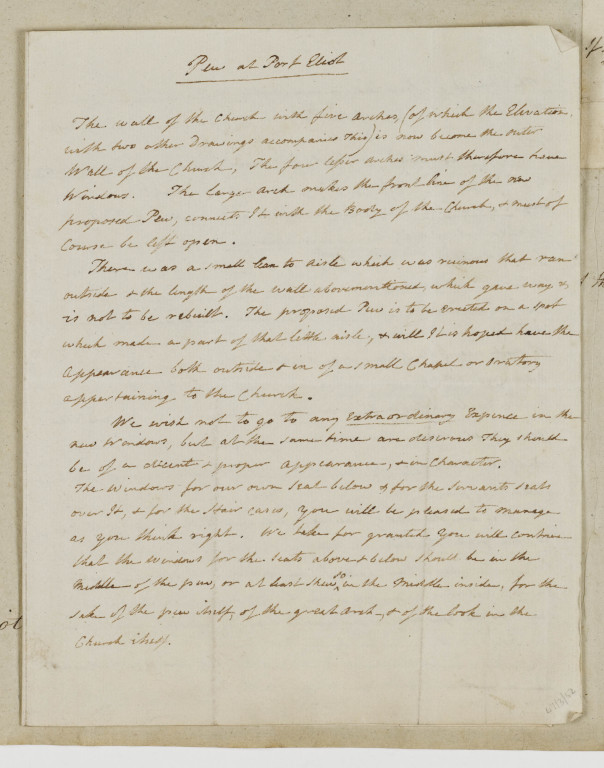 Pew at Port Eliot
The wall of the Church with five Arches, (of which the Elevation,
with two other Drawings accompanies This) is now become the outer
Wall of the Church, The four lesser Arches must therefore have
Windows. The larger Arch makes the front line of the new
proposed Pew, connects It with the Body of the Church, & must of
Course be left open.
There was a small Lean to Aisle which was ruinous that ran
outside & the length of the wall abovementioned, which gave way, &
is not to be rebuilt. The proposed Pew is to be erected on a spot
which made a part of that little aisle, & will It is hoped have the
Appearance both outside & in of a small Chapel or Oratory
appertaining to the Church.
We wish not to go to any Extraordinary Expence in the
new Windows, but at the same time are desirous They should
be of a decent & proper Appearance, & in Character.
The Windows for our own Seat below & for the Servants seats
over It, & for the Stair cases, You will be pleased to manage
as You think right. We take for granted You will contrive
that the Windows for the Seats above & below should be in the
Middle of the pew, or at least shew so in the Middle inside, for the
sake of the pew itself, of the great Arch, & of the look in the
Church itself.